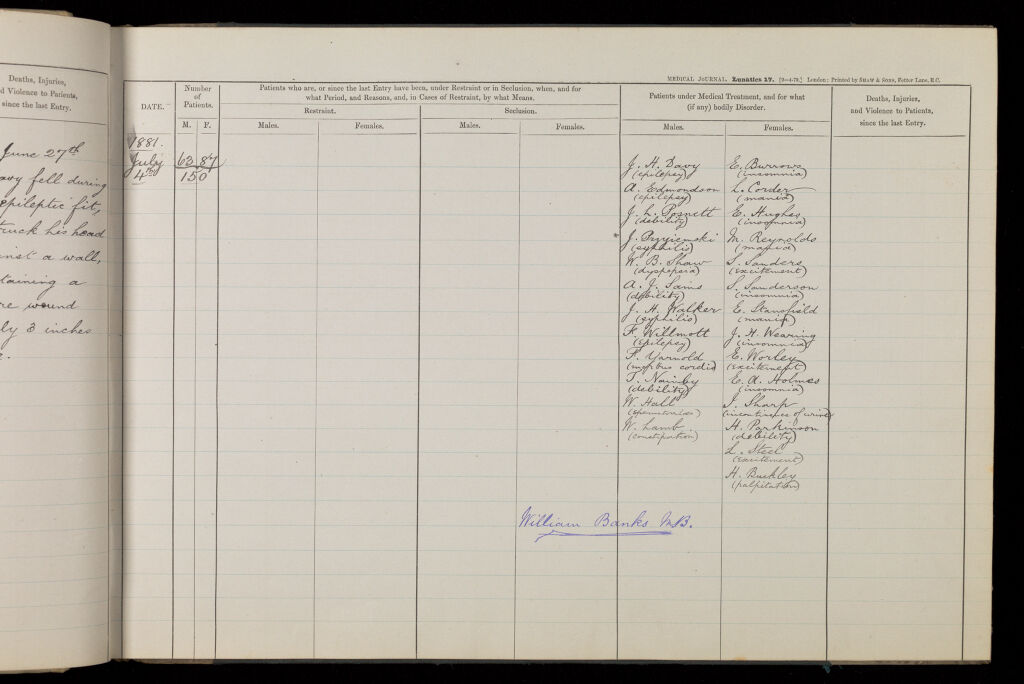 Deaths, Injuries,
d Violence to Patients,
since the last Entry.
June 27th
avy fell during
epileptic fit,
ruck his head
inst a wall,
taining a
re wound
ly 3 inches
MEDICAL JOURNAL. Lunatics 17. [9—4-79.] London: Printed by SHAW & SONS, Fetter Lane, E.C.
DATE.
Number of Patients.
M. F.
Patients who are, or since the last Entry have been, under Restraint or in Seclusion, when, and for
what Period, and Reasons, and, in Cases of Restraint, by what Means.
Restraint. Seclusion.
Males. Females. Males. Females.
Patients under Medical Treatment, and for what
(if any) bodily Disorder.
Males. Females.
Deaths, Injuries,
and Violence to Patients,
since the last Entry.
1881.
July 63 87
4th 150
J. H. Davy E. Burrows
(epilepsy) (insomnia)
A. Edmondson L. Corder
(epilepsy) (mania)
J. L. Posnett E. Hughes
(debility) (insomnia)
J. M. Reynolds
(syphilis) (mania)
W. B. Shaw S. Sanders
(dyspepsia) (excitement)
A. J. Sams S. Sanderson
(debility) (insomnia)
J. H. Walker E. Stansfield
(syphilis) (mania)
F. Willmott J. H. Wearing
(epilepsy) (insomnia)
P. Yarnold E. Worley
(morbus cordis) (excitement)
T. Nainby E. A. Holmes
(debility) (insomnia)
W. Hall J. Sharp
(incontinence of urine)
W. Lamb. H. Parkinson
(constipation) (debility)
L. Steel
(excitement)
H. Buckley
(palpitation)
William Banks M.B.